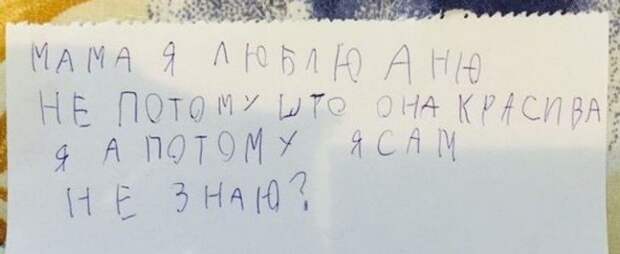 МАМА Я ЛЮБЛЮ АНЮ
НЕ ПОТОМУ ШТО ОНА КРАСИВА
Я А ПОТОМУ ЯСАМ
НЕ ЗНАЮ?